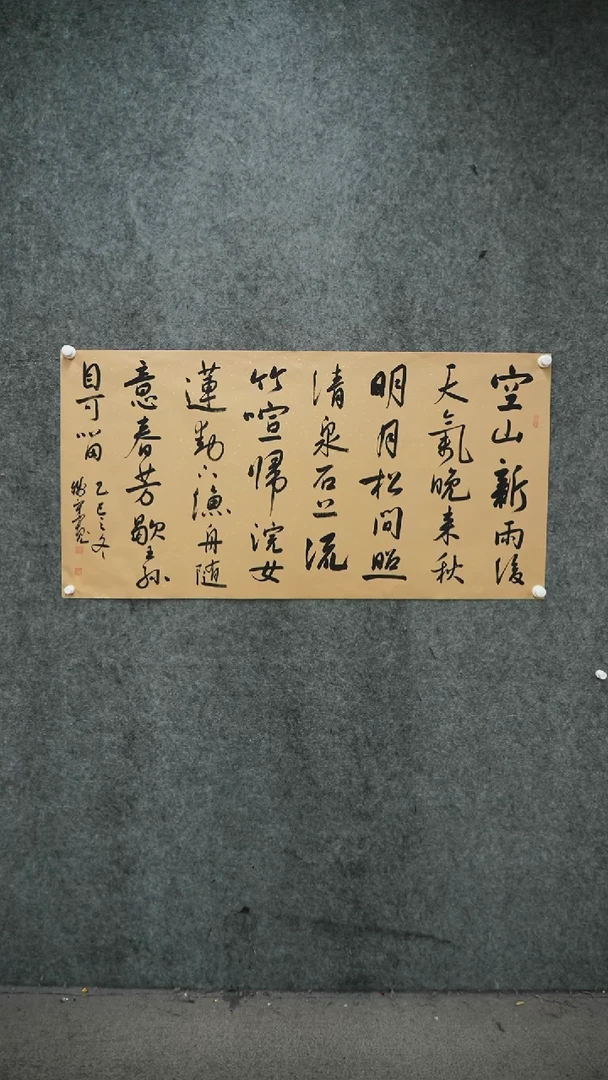 空山新雨後
天氣晚来秋
明月松間照
清泉石上流
竹喧歸浣女
蓮動下漁舟随
意春芳歇王孫
自可留
乙巳之冬